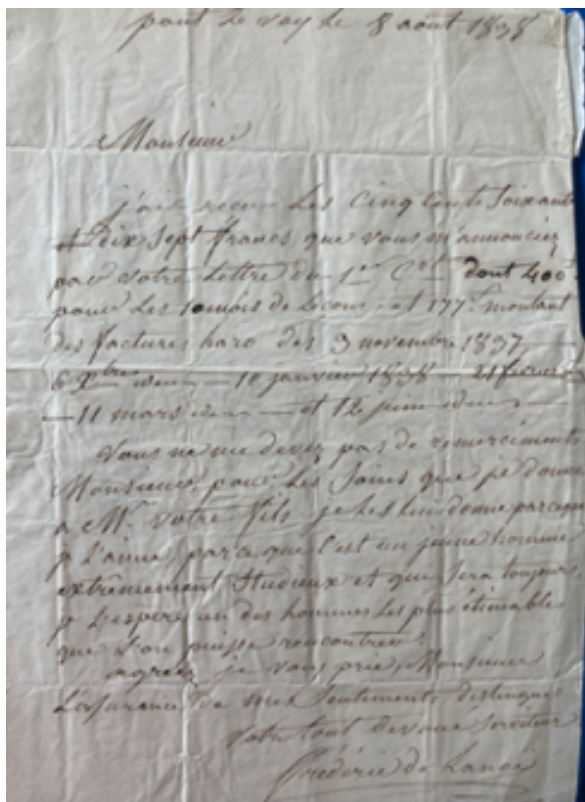 pont Le voy Le 8 aout 1838
Monsieur
j'ai recu Les Cinq Cents Soixante
et dix Sept francs que vous m'annonciez
par votre Lettre du 1er Ct dont 400f
pour Les 10 mois de Lecons et 177f montant
des factures haro des 3 novembre 1837
6 Xbre idem — 10 janvier 1838 21 fevrier
— 11 mars idem — et 12 juin idem
Vous ne me devez pas de remerciments
Monsieur, pour Les Soins que je donne
a Mr votre fils je Les lui donne parceque
je L'aime, parce que C'est un jeune homme
extrêmement Studieux et qui Sera toujours
je L'espere un des hommes Les plus estimables
que L'on puisse rencontrer.
agréez je vous prie, Monsieur
L'assurance de mes Sentiments distingués
Votre tout devoué Serviteur
Frédéric de